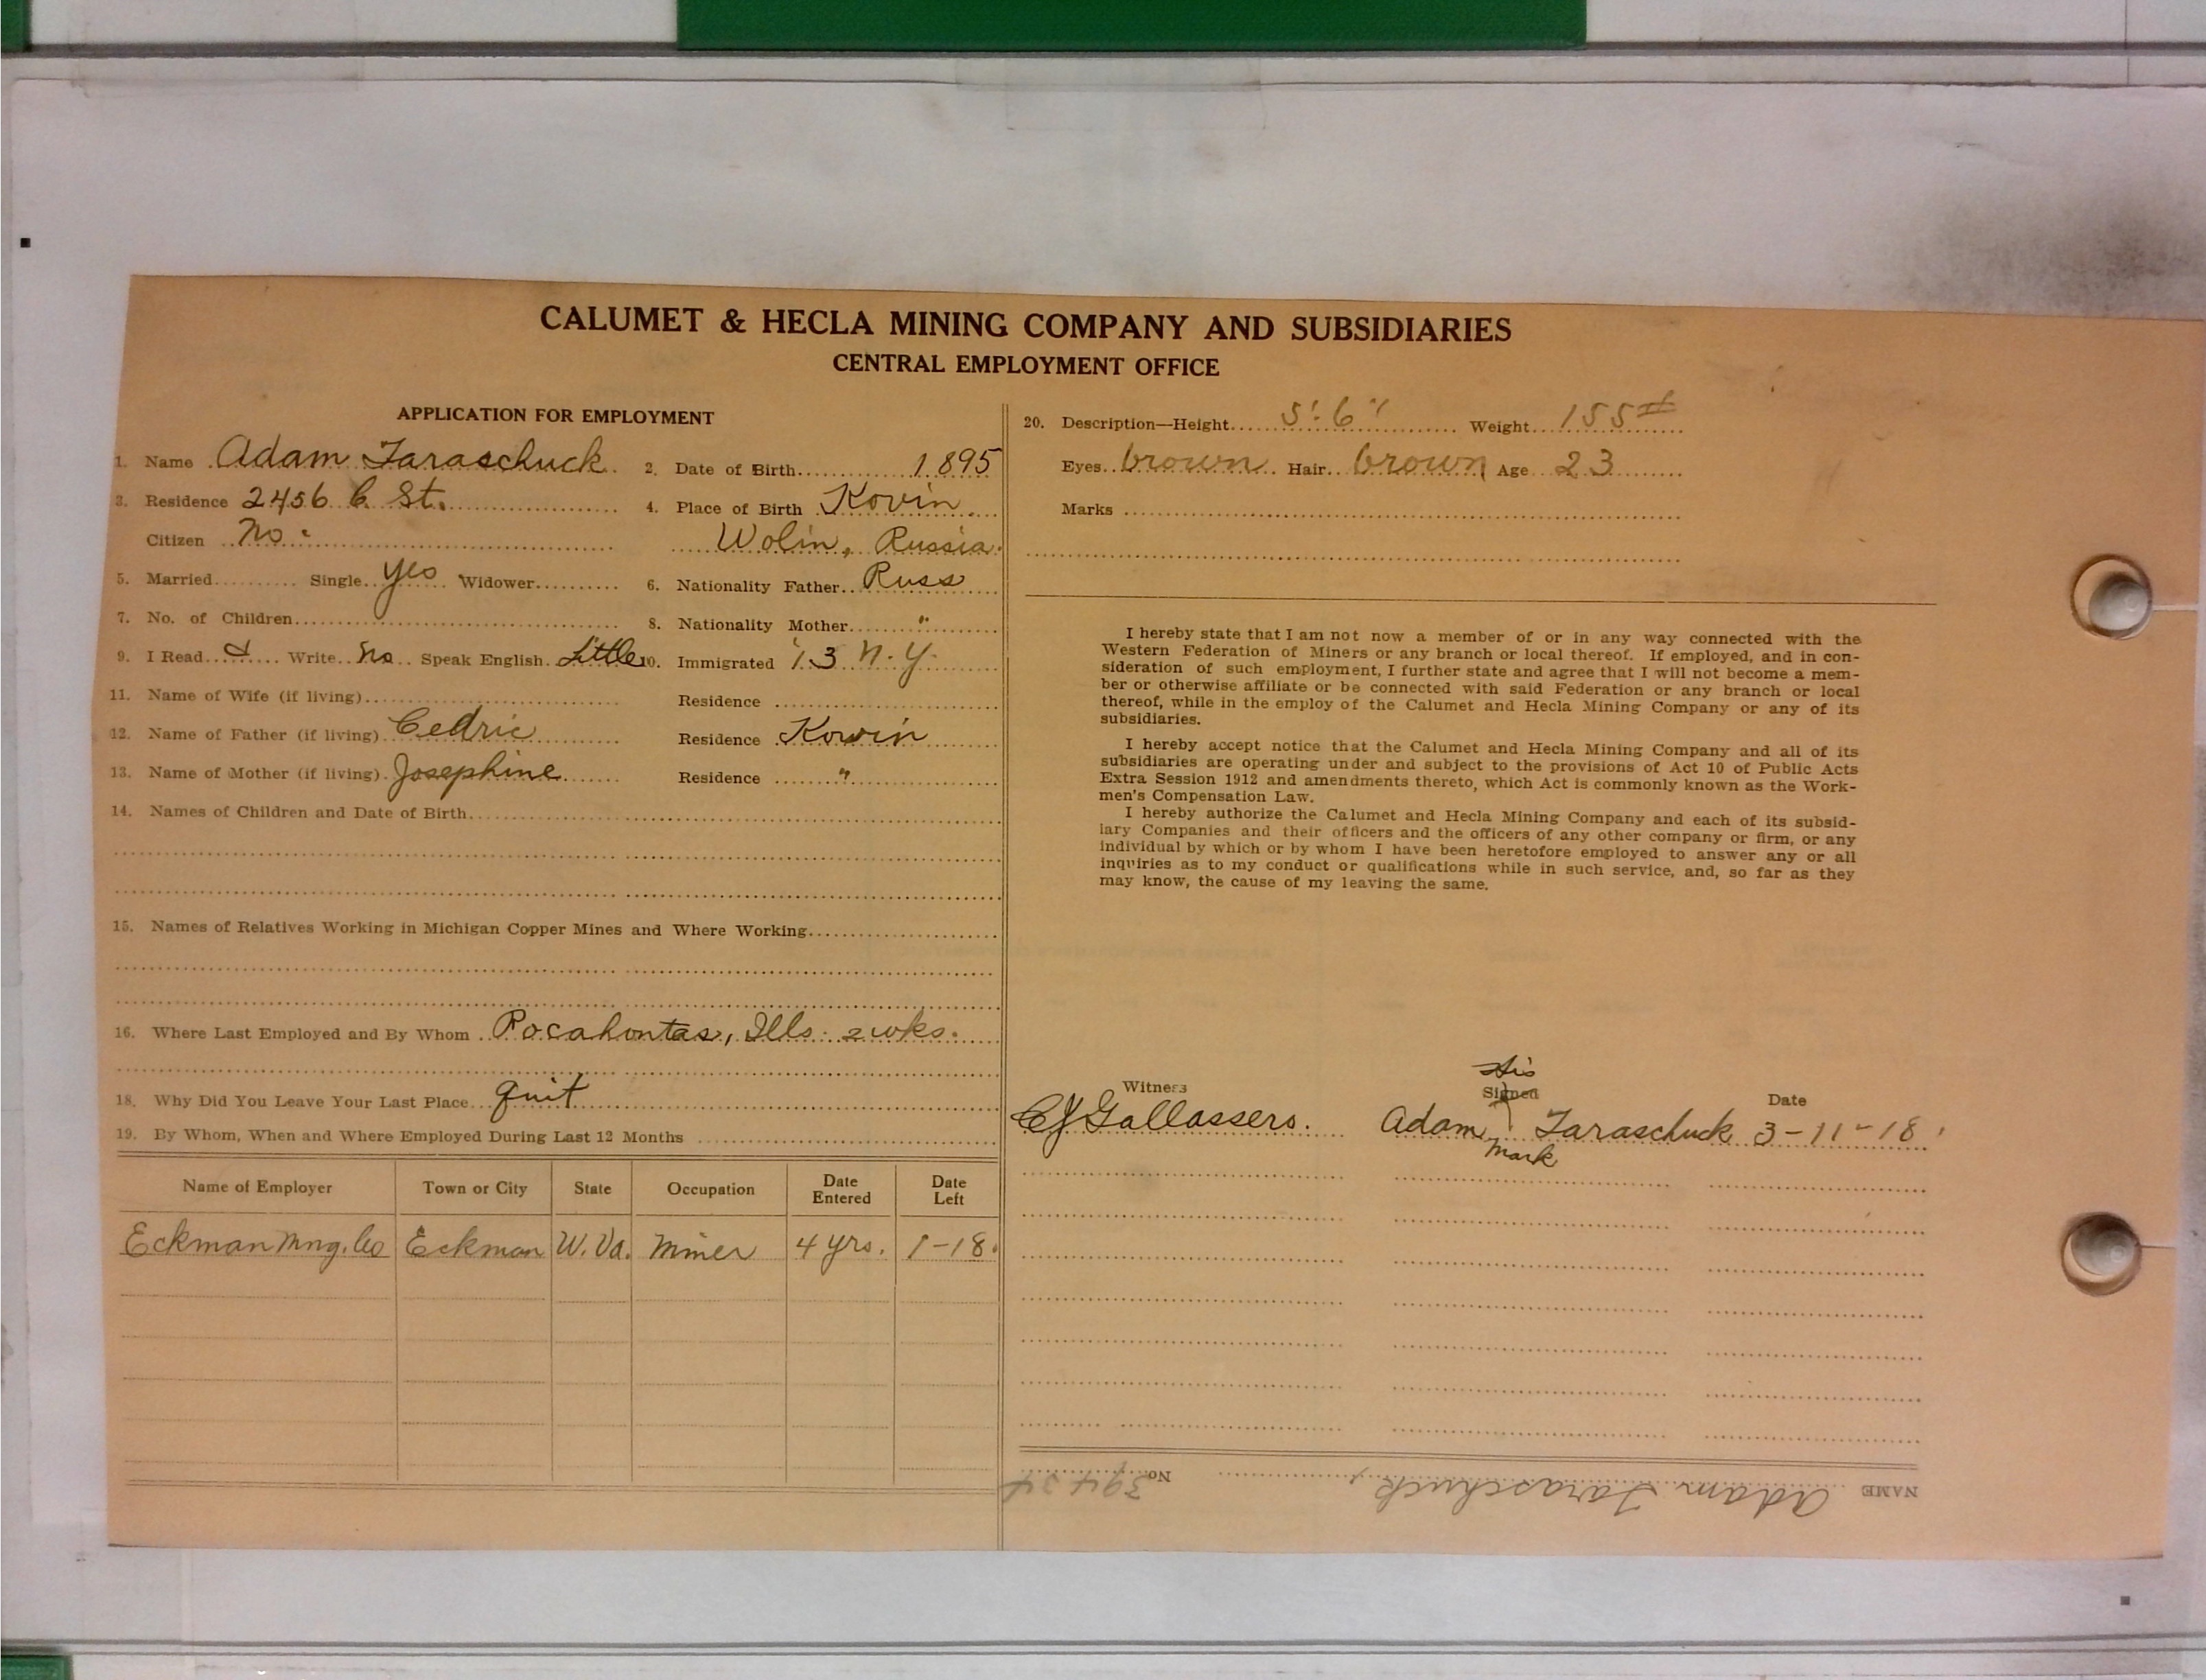 CALUMET & HECLA MINING COMPANY AND SUBSIDIARIES
CENTRAL EMPLOYMENT OFFICE
APPLICATION FOR EMPLOYMENT
1. Name Adam Taraschuck 2. Date of Birth 1895
3. Residence 2456 C St. 4. Place of Birth Kovin
Citizen No. Wolin, Russia.
5. Married Single yes Widower 6. Nationality Father Russ
7. No. of Children 8. Nationality Mother "
9. I Read & Write no Speak English Little 10. Immigrated '13 N.Y.
11. Name of Wife (if living) Residence
12. Name of Father (if living) Cedric Residence Kovin
13. Name of Mother (if living) Josephine Residence "
14. Names of Children and Date of Birth
15. Names of Relatives Working in Michigan Copper Mines and Where Working
16. Where Last Employed and By Whom Pocahontas, Ills. 2 wks.
18. Why Did You Leave Your Last Place quit
19. By Whom, When and Where Employed During Last 12 Months
Name of Employer Town or City State Occupation Date Entered Date Left
Eckman Mng. Co Eckman W. Va. Miner 4 yrs. 1-18.
20. Description—Height 5' 6" Weight 155#
Eyes brown Hair brown Age 23
Marks
I hereby state that I am not now a member of or in any way connected with the
Western Federation of Miners or any branch or local thereof. If employed, and in con-
sideration of such employment, I further state and agree that I will not become a mem-
ber or otherwise affiliate or be connected with said Federation or any branch or local
thereof, while in the employ of the Calumet and Hecla Mining Company or any of its
subsidiaries.
I hereby accept notice that the Calumet and Hecla Mining Company and all of its
subsidiaries are operating under and subject to the provisions of Act 10 of Public Acts
Extra Session 1912 and amendments thereto, which Act is commonly known as the Work-
men's Compensation Law.
I hereby authorize the Calumet and Hecla Mining Company and each of its subsid-
iary Companies and their officers and the officers of any other company or firm, or any
individual by which or by whom I have been heretofore employed to answer any or all
inquiries as to my conduct or qualifications while in such service, and, so far as they
may know, the cause of my leaving the same.
His
Witness Signed Date
CJ Gallassero. Adam Taraschuck 3-11-18.
Mark
NAME Adam Taraschuck No. 39434